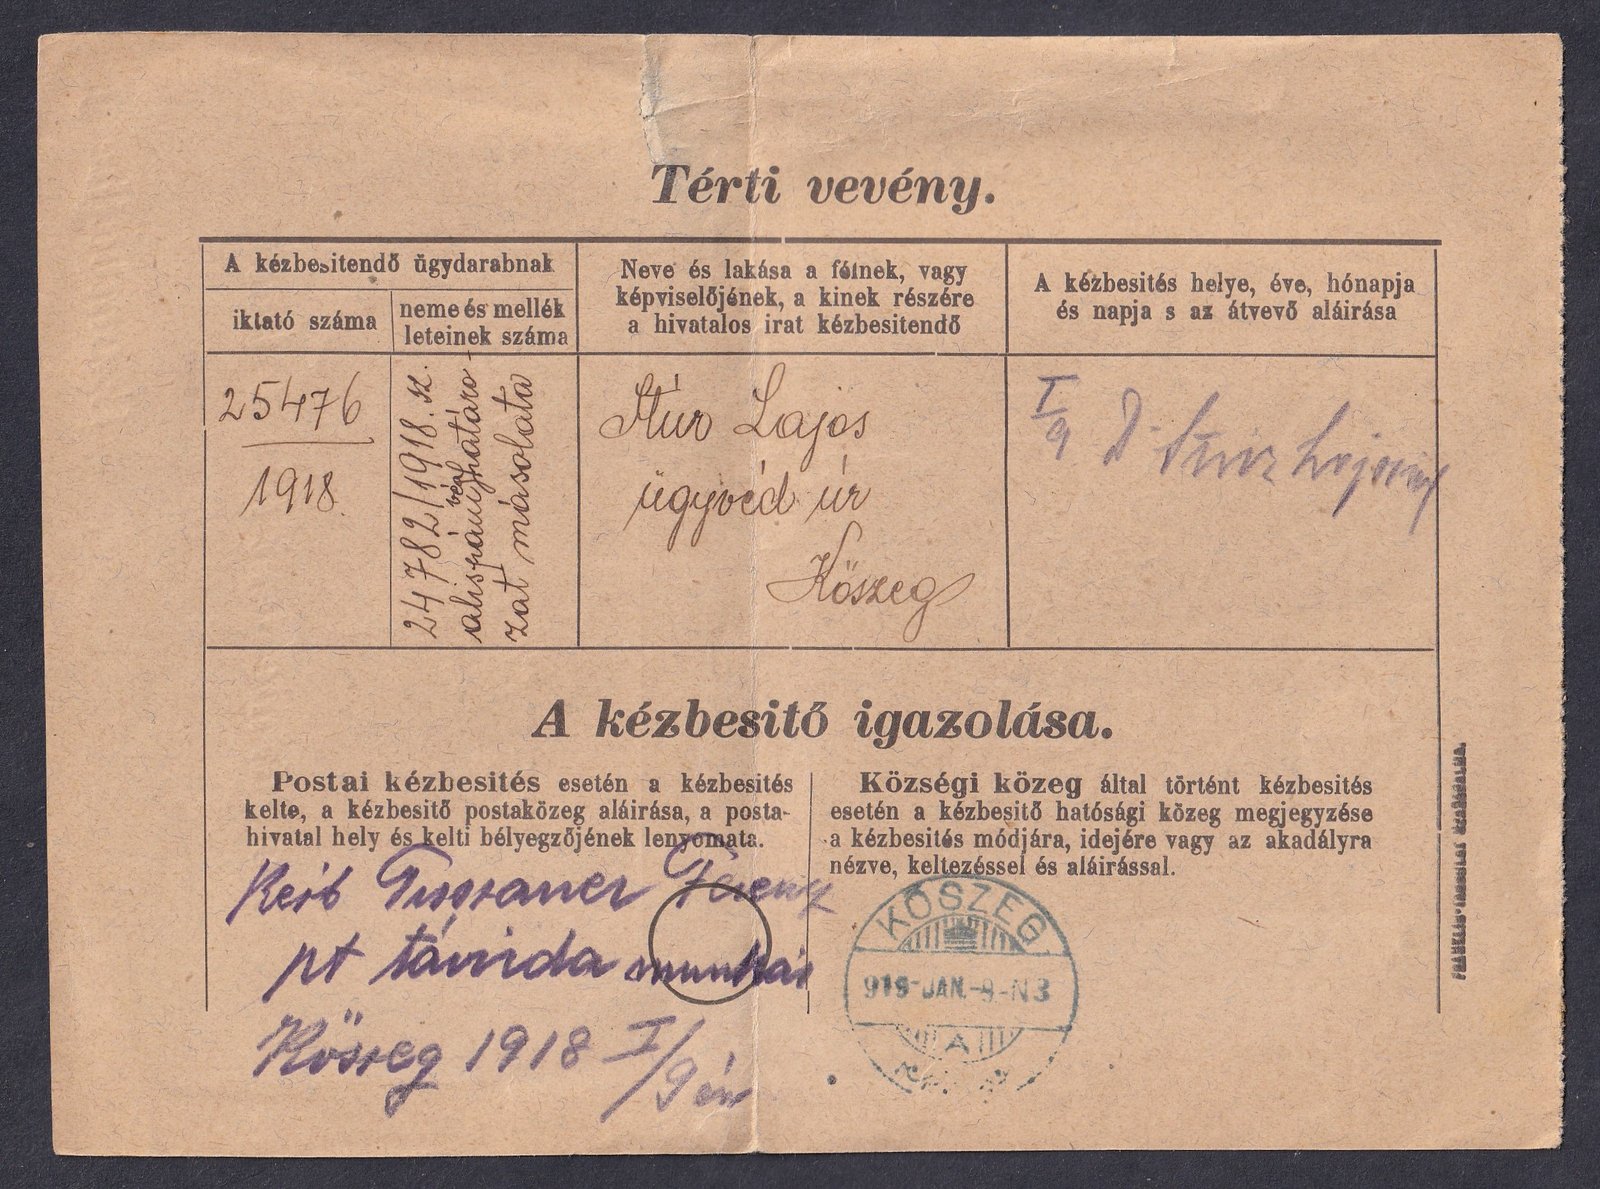 Térti vevény.
A kézbesitendő ügydarabnak
iktató száma
neme és mellék
leteinek száma
Neve és lakása a félnek, vagy
képviselőjének, a kinek részére
a hivatalos irat kézbesitendő
A kézbesités helye, éve, hónapja
és napja s az átvevő aláirása
25476
1918.
24782/1918. sz.
alispáni véghatáro-
zat másolata
Stúr Lajos
ügyvéd úr
Kőszeg
I/9 Lajos
A kézbesitő igazolása.
Postai kézbesités esetén a kézbesités
kelte, a kézbesitő postaközeg aláirása, a posta-
hivatal hely és kelti bélyegzőjének lenyomata.
Ferenc
pt távirda munkás
Kőszeg 1918 I/9 én
Községi közeg által történt kézbesités
esetén a kézbesitő hatósági közeg megjegyzése
a kézbesités módjára, idejére vagy az akadályra
nézve, keltezéssel és aláirással.
KŐSZEG
918-JAN.-9-N3
A